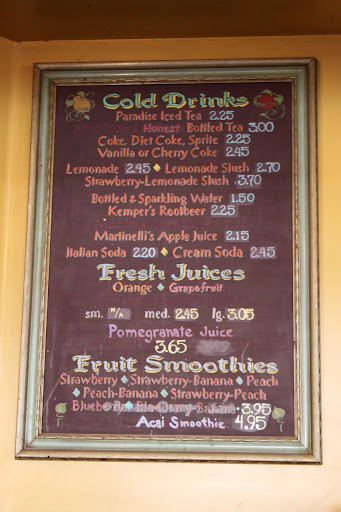 Cold Drinks
Paradise Iced Tea 2.25
Honest Bottled Tea 3.00
Coke, Diet Coke, Sprite 2.25
Vanilla or Cherry Coke 2.45
Lemonade 2.45 Lemonade Slush 2.70
Strawberry-Lemonade Slush 3.70
Bottled & Sparkling Water 1.50
Kemper's Rootbeer 2.25
Martinelli's Apple Juice 2.15
Italian Soda 2.20 Cream Soda 2.45
Fresh Juices
Orange Grapefruit
sm. N/A med. 2.45 lg. 3.05
Pomegranate Juice
3.65
Fruit Smoothies
Strawberry Strawberry-Banana Peach
Peach-Banana Strawberry-Peach
Blueberry Blueberry-Banana 3.95
Acai Smoothie 4.95